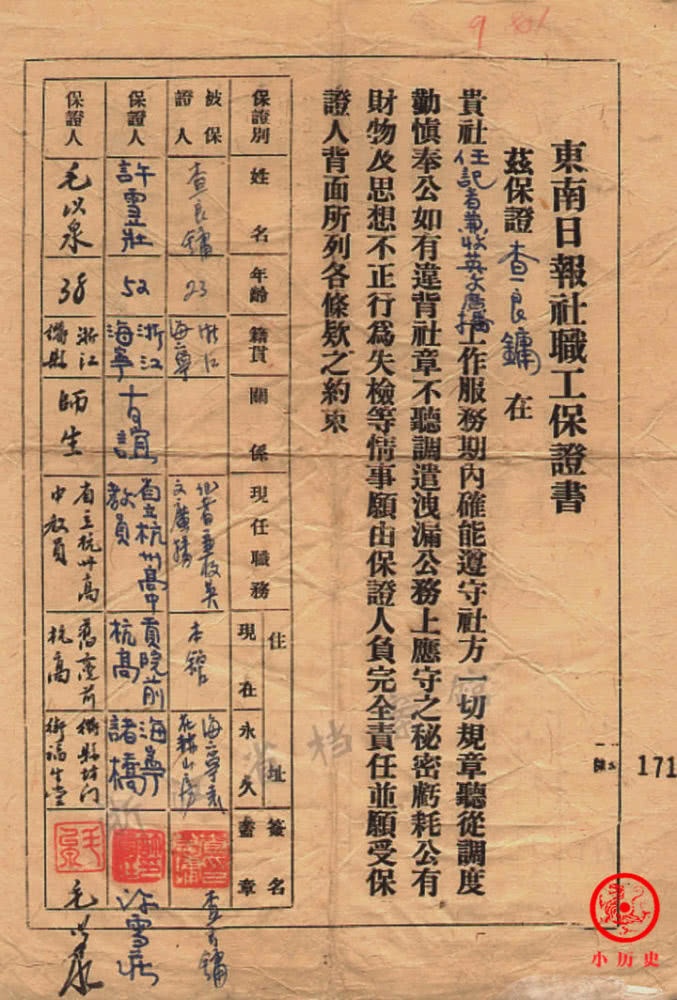 東南日報社職工保證書
茲保證 查良鏞 在
貴社任記者兼收英文廣播工作服務期內確能遵守社方一切規章聽從調度
勤慎奉公如有違背社章不聽調遣洩漏公務上應守之秘密虧耗公有
財物及思想不正行為失檢等情事願由保證人負完全責任並願受保
證人背面所列各條款之約束
保證別 姓名 年齡 籍貫 關係 現任職務 住址 現在 永久 簽名蓋章
被保證人 查良鏞 23 浙江海寧 本館 查良鏞
保證人 許雪壯 52 浙江海寧 省立杭州高中教員 貢院前杭高 海寧諸橋
保證人 毛以泉 38 浙江衢縣 師生 省立杭州高中教員 杭高 毛以泉
171
9
浙江省档案馆
小历史